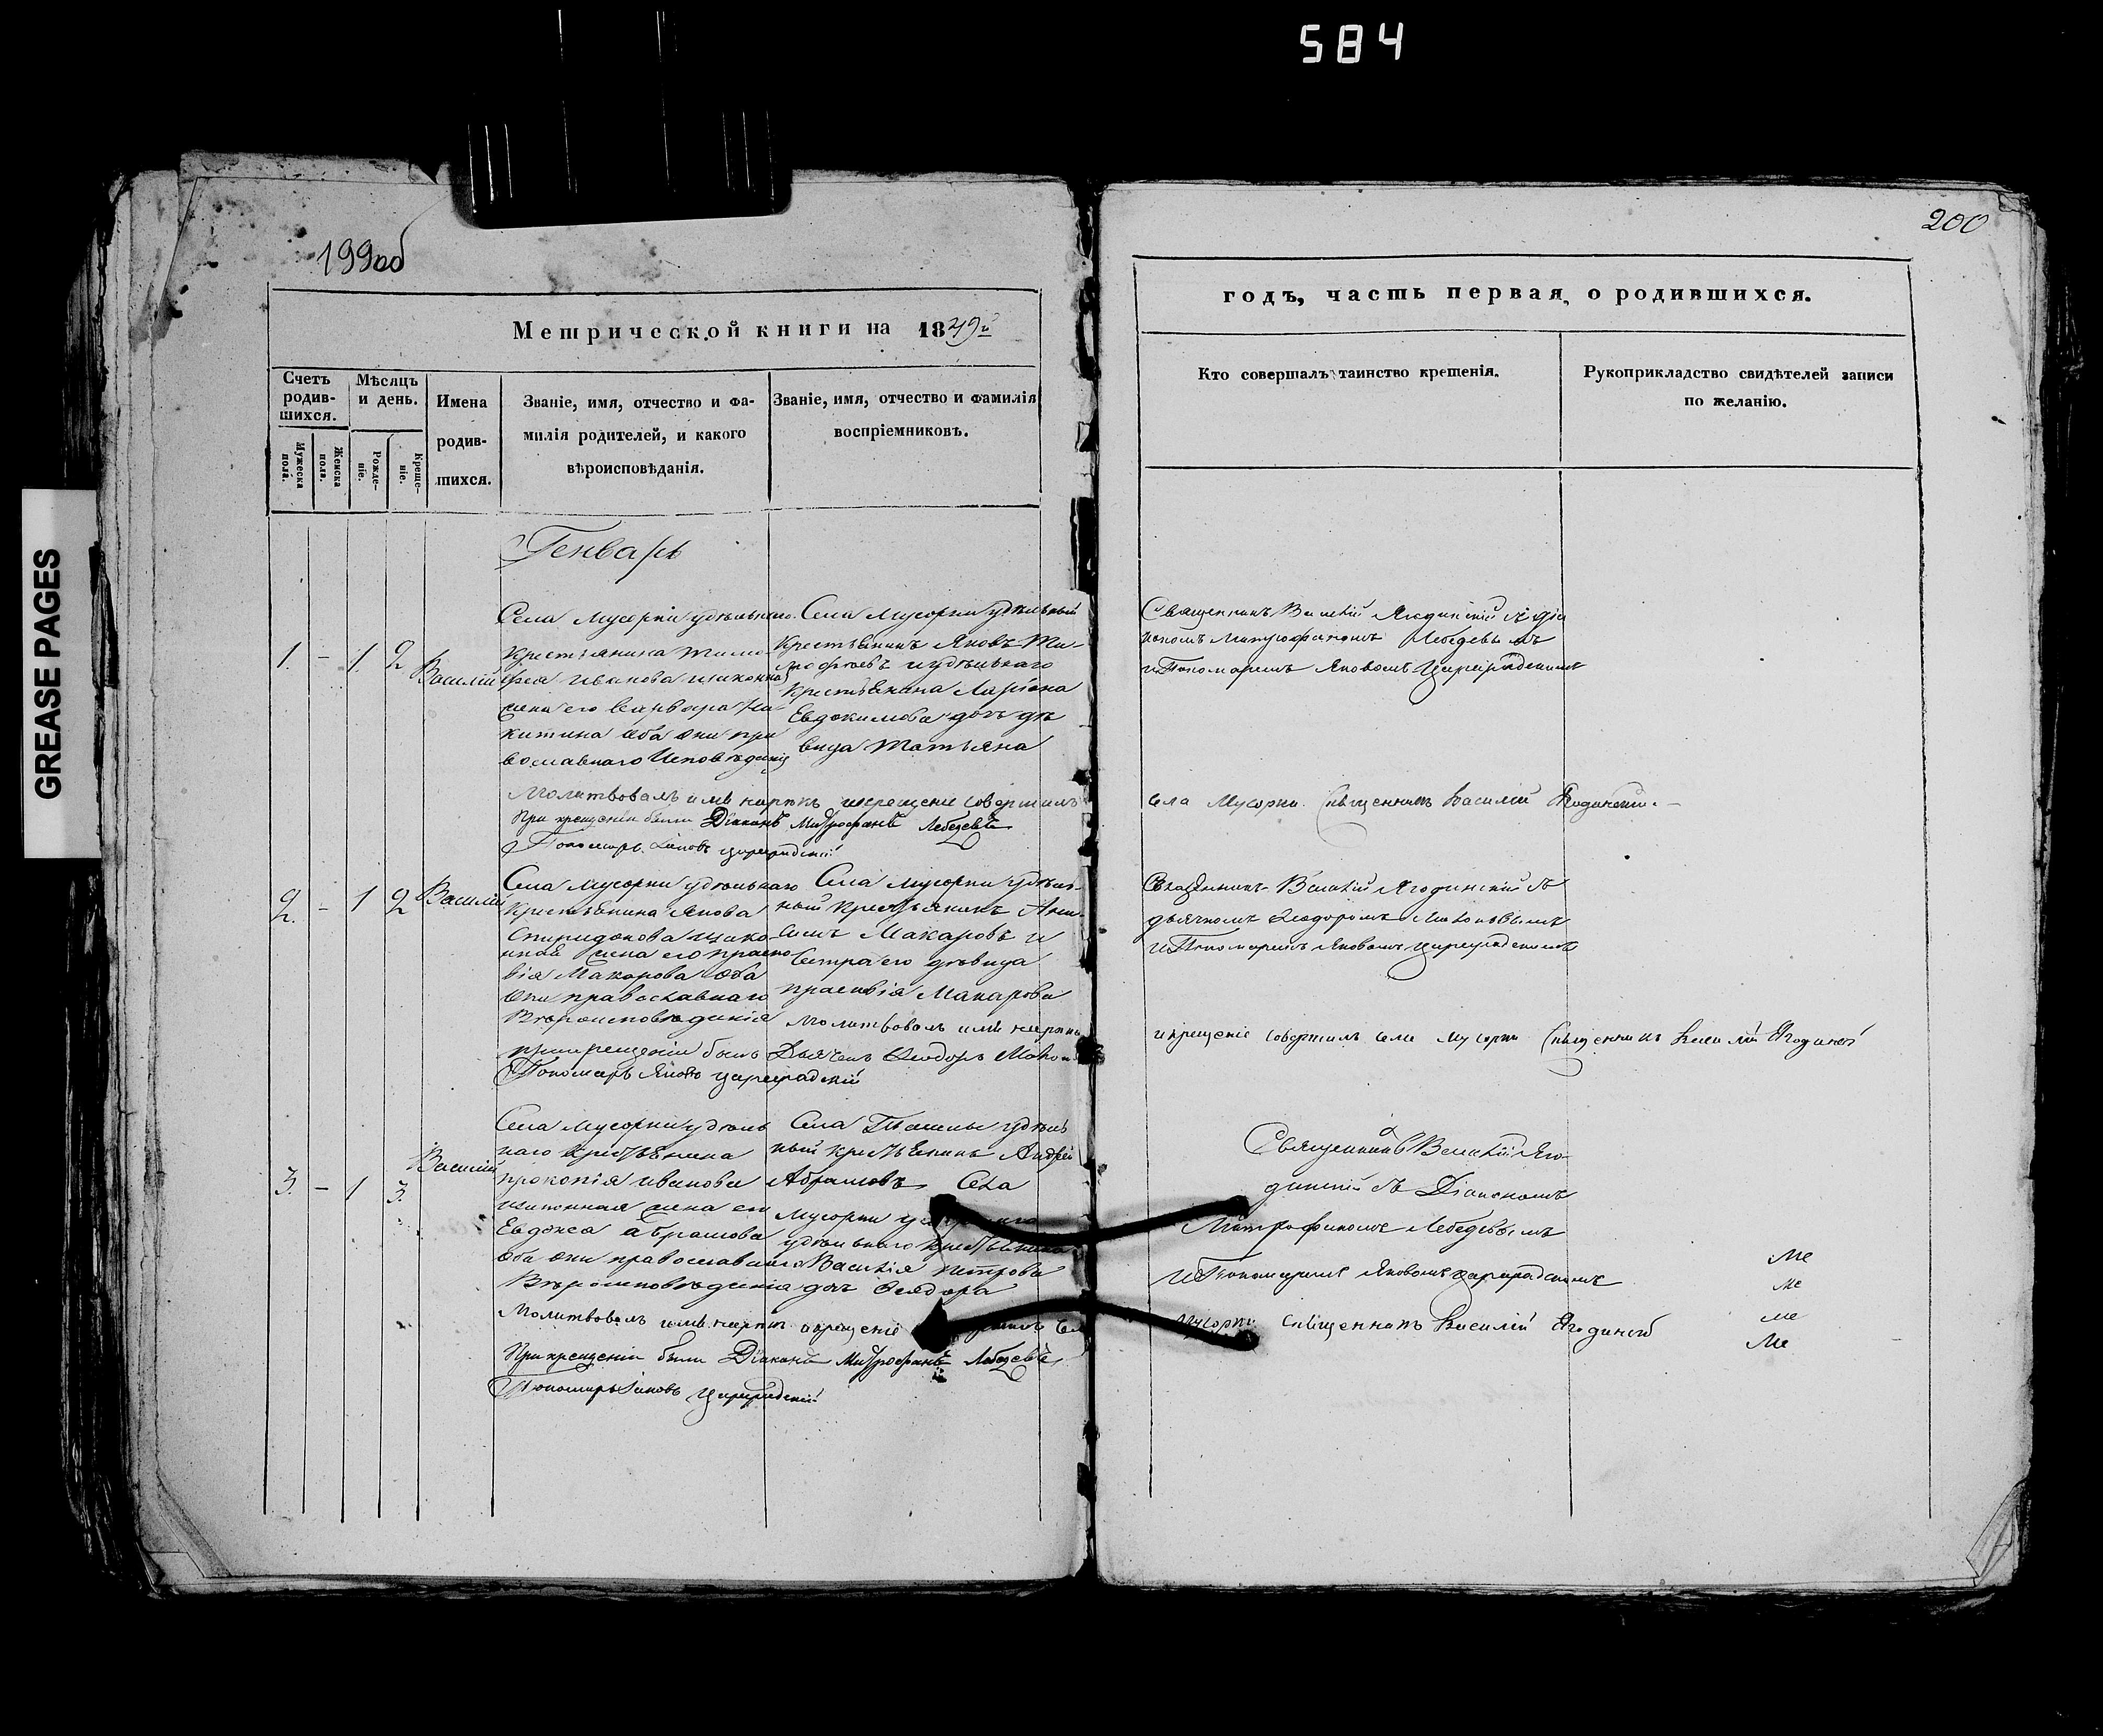 584
GREASE PAGES
199об
200
Метрической книги на 1849й
годъ, часть первая, о родившихся.
Счетъ родив-шихся.
Мужеска пола.
Женска пола.
Мѣсяцъ и день.
Рожде-ніе.
Креще-ніе.
Имена
родив-
шихся.
Званіе, имя, отчество и фа-
милія родителей, и какого
вѣроисповѣданія.
Званіе, имя, отчество и фамилія
воспріемниковъ.
Кто совершалъ таинство крещенія.
Рукоприкладство свидѣтелей записи
по желанію.
Генварь
1. – 1. 2
Василій
Села Мусорки удѣльнаго
крестьянина Тимо
фея Иванова и законная
жена его Варвара Ни
китина оба они пра
вославнаго Исповѣданія
Села Мусорки удѣльный
крестьянинъ Яковъ Ти-
мофѣевъ и удѣльнаго
крестьянина Ларіона
Евдокимова дочь дѣ
вица Татьяна
Священникъ Василій Ягодинскій съ діа
кономъ Митрофаномъ Лебедевымъ
и Пономаремъ Яковомъ Цареградскимъ
Молитвовалъ имя нарекъ и крещеніе совершилъ
села Мусорки Священникъ Василій Ягодинскій.
При крещеніи были Діаконъ Митрофанъ Лебедевъ
Пономарь Іаковъ Цареградскій
2. – 1 2
Василій
Села Мусорки удѣльнаго
крестьянина Якова
Спиридонова и зако
нная жена его Праско
вія Макарова оба
они православнаго
Вѣроисповѣданія
Села Мусорки удѣль-
ный крестьянинъ
Макаровъ и
Сестра его дѣвица
Прасковія Макарова
Священникъ Василій Ягодинскій съ
дьячкомъ Ѳеодоромъ
и Пономаремъ Яковомъ Цареградскимъ
Молитвовалъ имя нарекъ
и крещеніе совершилъ села Мусорки Священникъ Василій Ягодинскій
при крещеніи были Дьячекъ Ѳеодоръ
Пономарь Яковъ Цареградскій
3. – 1 3.
Василій
Села Мусорки удѣль
наго крестьянина
Прокопія Иванова
и законная жена его
Евдокса Абрамова
оба они православнаго
Вѣроисповѣданія
Села Ташелы удѣль
ный крестьянинъ Андрей
Абрамовъ, Села
Мусорки
удѣльнаго крестьянина
Василія Петрова
дочь Ѳеодора
Священникъ Василій Яго
динскій съ Діакономъ
Митрофаномъ Лебедевымъ
и Пономаремъ Яковомъ Цареградскимъ
Молитвовалъ имя нарекъ и крещеніе
Мусорки Священникъ Василій Ягодинскій
При крещеніи были Діаконъ Митрофанъ Лебедевъ,
Пономарь Іаковъ Цареградскій